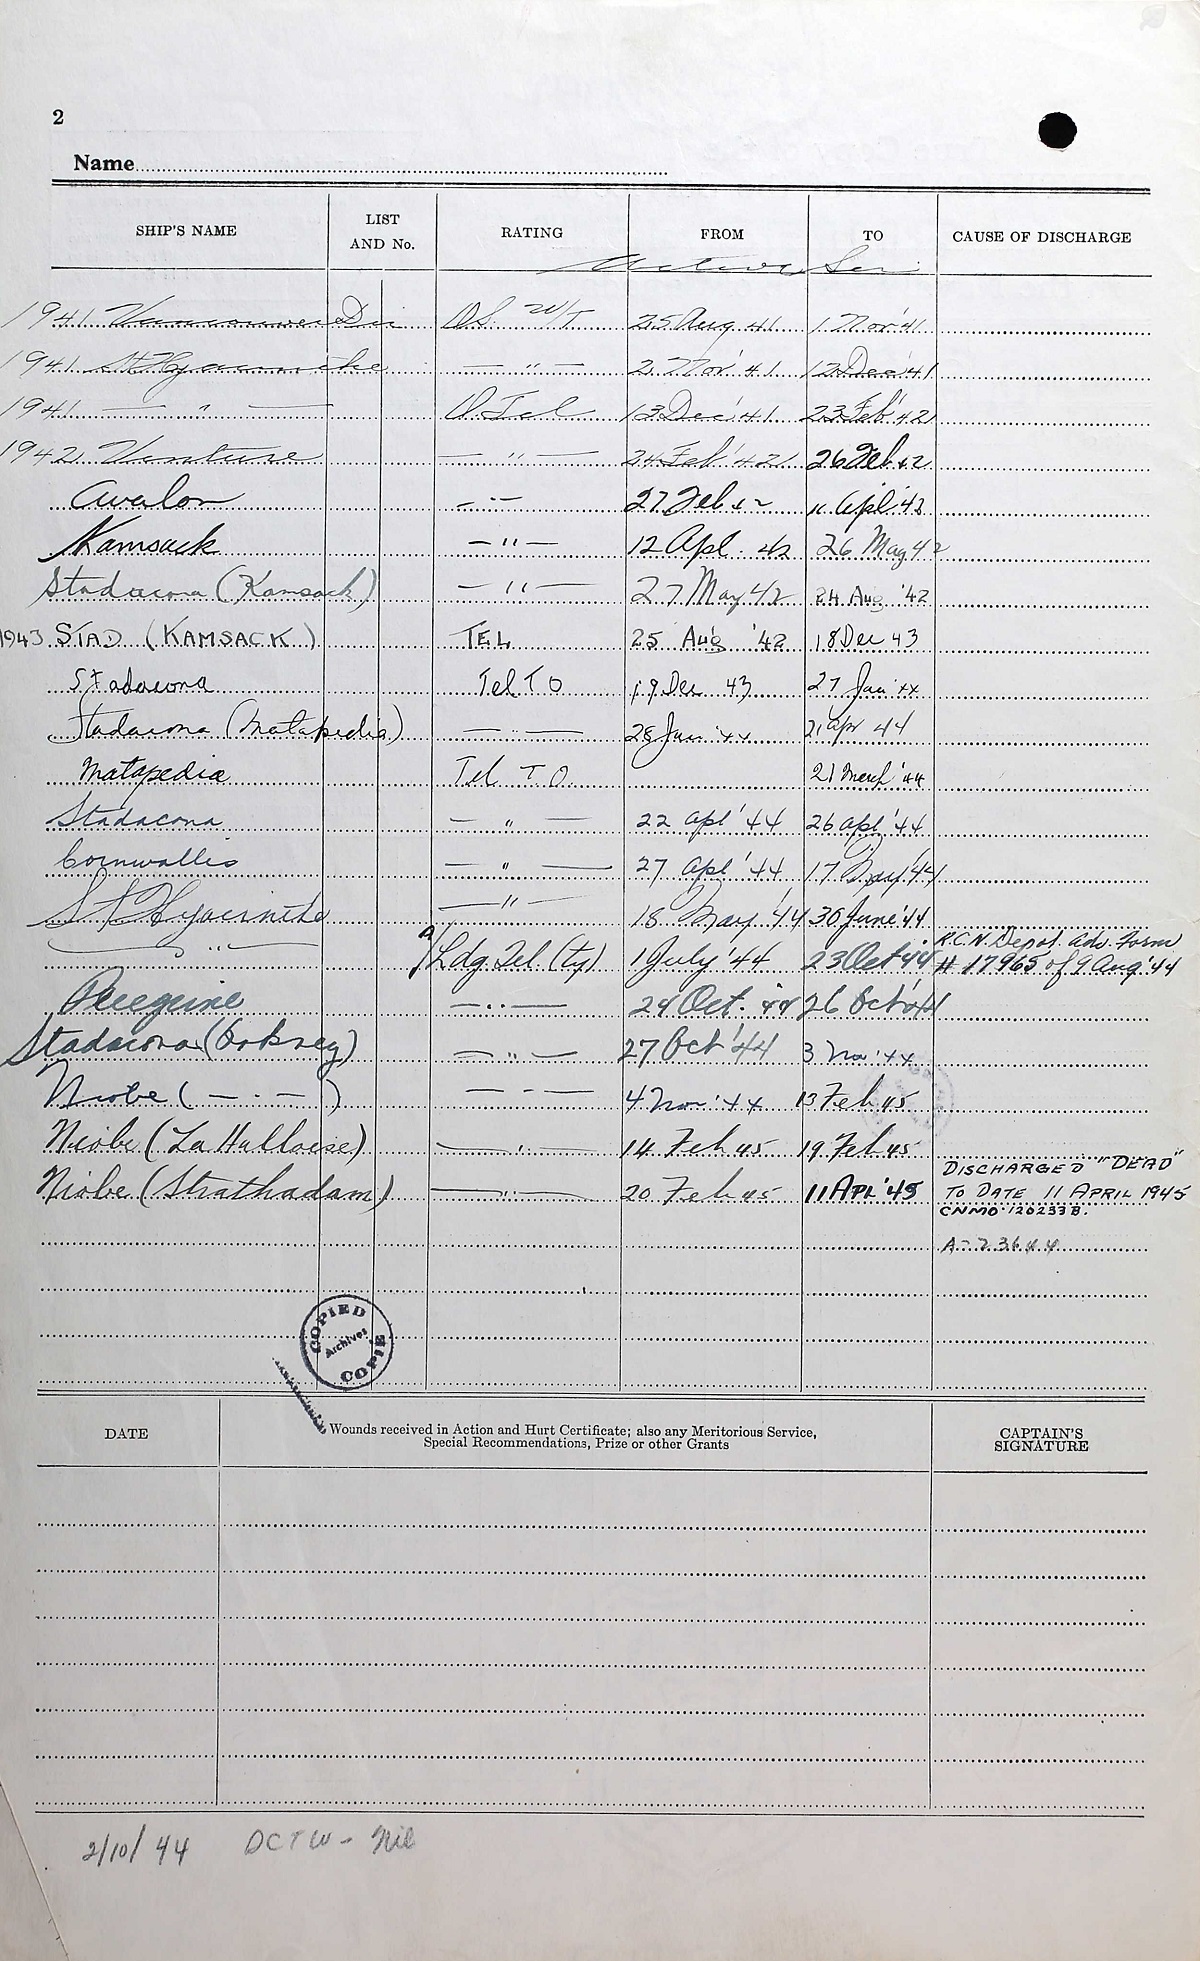 2
Name
SHIP'S NAME LIST AND No. RATING FROM TO CAUSE OF DISCHARGE
Active Ser
1941 Vancouver Div O.S. W/T 25 Aug 41 1 Nov '41
1941 St Hyacinthe — " — 2 Nov '41 12 Dec '41
1941 — " — O Tel 13 Dec '41 23 Feb '42
1942 Venture — " — 24 Feb '42 26 Feb 42
Avalon — " — 27 Feb 42 11 Apl '42
Kamsack — " — 12 Apl. 42 26 May 42
Stadacona (Kamsack) — " — 27 May 42 24 Aug '42
1943 STAD (KAMSACK) TEL 25 Aug '42 18 Dec 43
Stadacona Tel T O 19 Dec 43 27 Jan '44
Stadacona (Matapedia) — " — 28 Jan '44 21 Apr 44
Matapedia Tel T.O. 21 March '44
Stadacona — " — 22 Apl '44 26 Apl '44
Cornwallis — " — 27 Apl '44 17 May '44
St Hyacinthe — " — 18 May '44 30 June '44
— " — A/Ldg. Tel. (Ty) 1 July '44 23 Oct '44 R.C.N. Depot. Adv. Form # 17965 of 9 Aug '44
Peregrine — " — 24 Oct. '44 26 Oct '44
Stadacona (Orkney) — " — 27 Oct '44 3 Nov '44
Niobe ( — " — ) — " — 4 Nov '44 13 Feb 45
Niobe (La Hulloise) — " — 14 Feb 45 19 Feb 45
Niobe (Strathadam) — " — 20 Feb 45 11 APL '45 DISCHARGED "DEAD"
TO DATE 11 APRIL 1945
CNMO 120233 B.
A-23644
COPIED
Archives
COPIÉ
DATE Wounds received in Action and Hurt Certificate; also any Meritorious Service, Special Recommendations, Prize or other Grants CAPTAIN'S SIGNATURE
2/10/44 DCTW - Nil